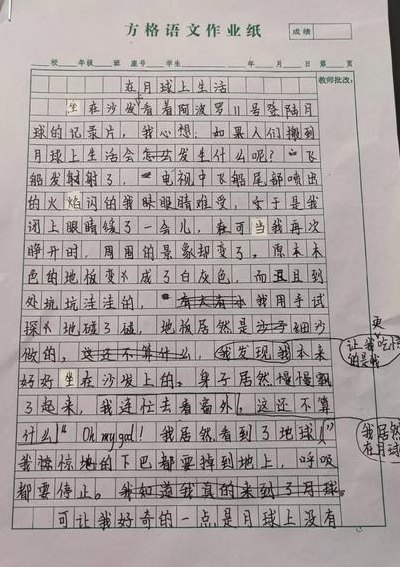 方格语文作业纸
成绩
校 年级 班 座号 学生 年 月 日 第 页
教师批改:
在月球上生活
坐在沙发看着阿波罗11号登陆月
球的记录片，我心想:如果人们搬到
月球上生活会怎么发生什么呢?"飞
船发射了，电视中飞船尾部喷出
的火焰闪的我眼睛难受，于是我
闭上眼睛缓了一会儿，在可当我再次
睁开时，周围的景象却变了。原本木
色的地板变成了白灰色，而且且到
处坑坑洼洼的，我用手试
探地碰了碰，地板居然是沙子细沙
做的，这还不算什么，我发现我本来
好好坐在沙发上的，身子居然慢慢飘
了起来，我连忙去看窗外，这还不算
什么!"Oh my god!我居然看到了地球!"
我惊惊地的下巴都要掉到地上，呼吸
都要停止。我知道我真的来到了月球。
可让我好奇的一点是月球上没有
更
让我吃惊
的是我
我居然
在月球